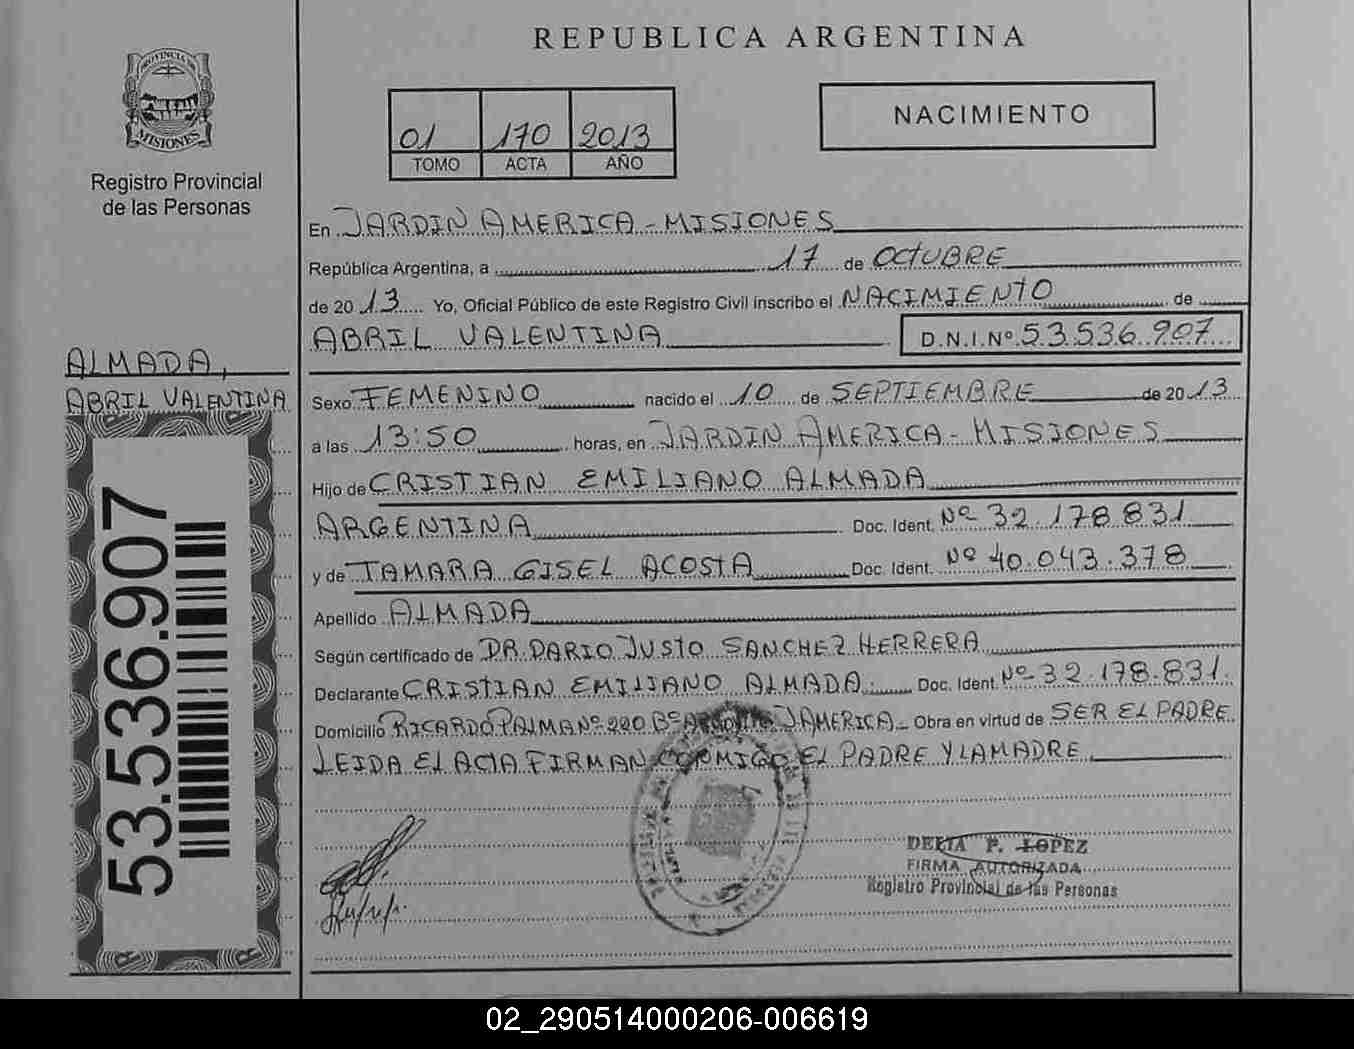 REPUBLICA ARGENTINA
PROVINCIA DE
MISIONES
Registro Provincial
de las Personas
01 170 2013
TOMO ACTA AÑO
NACIMIENTO
En JARDIN AMERICA - MISIONES
República Argentina, a 17 de OCTUBRE
de 20 13 Yo, Oficial Público de este Registro Civil inscribo el NACIMIENTO de
ABRIL VALENTINA D.N.I.Nº 53.536.907
ALMADA,
ABRIL VALENTINA
53.536.907
Sexo FEMENINO nacido el 10 de SEPTIEMBRE de 20 13
a las 13:50 horas, en JARDIN AMERICA - MISIONES
Hijo de CRISTIAN EMILIANO ALMADA
ARGENTINA Doc. Ident. Nº 32.178.831
y de TAMARA GISEL ACOSTA Doc. Ident. Nº 40.043.378
Apellido ALMADA
Según certificado de DR. DARIO JUSTO SANCHEZ HERRERA
Declarante CRISTIAN EMILIANO ALMADA Doc. Ident. Nº 32.178.831
Domicilio RICARDO PALMA Nº 220 Bº J. AMERICA - Obra en virtud de SER EL PADRE
LEIDA EL ACTA FIRMAN CONMIGO EL PADRE Y LA MADRE
DELIA P. LOPEZ
FIRMA AUTORIZADA
Registro Provincial de las Personas
02_290514000206-006619